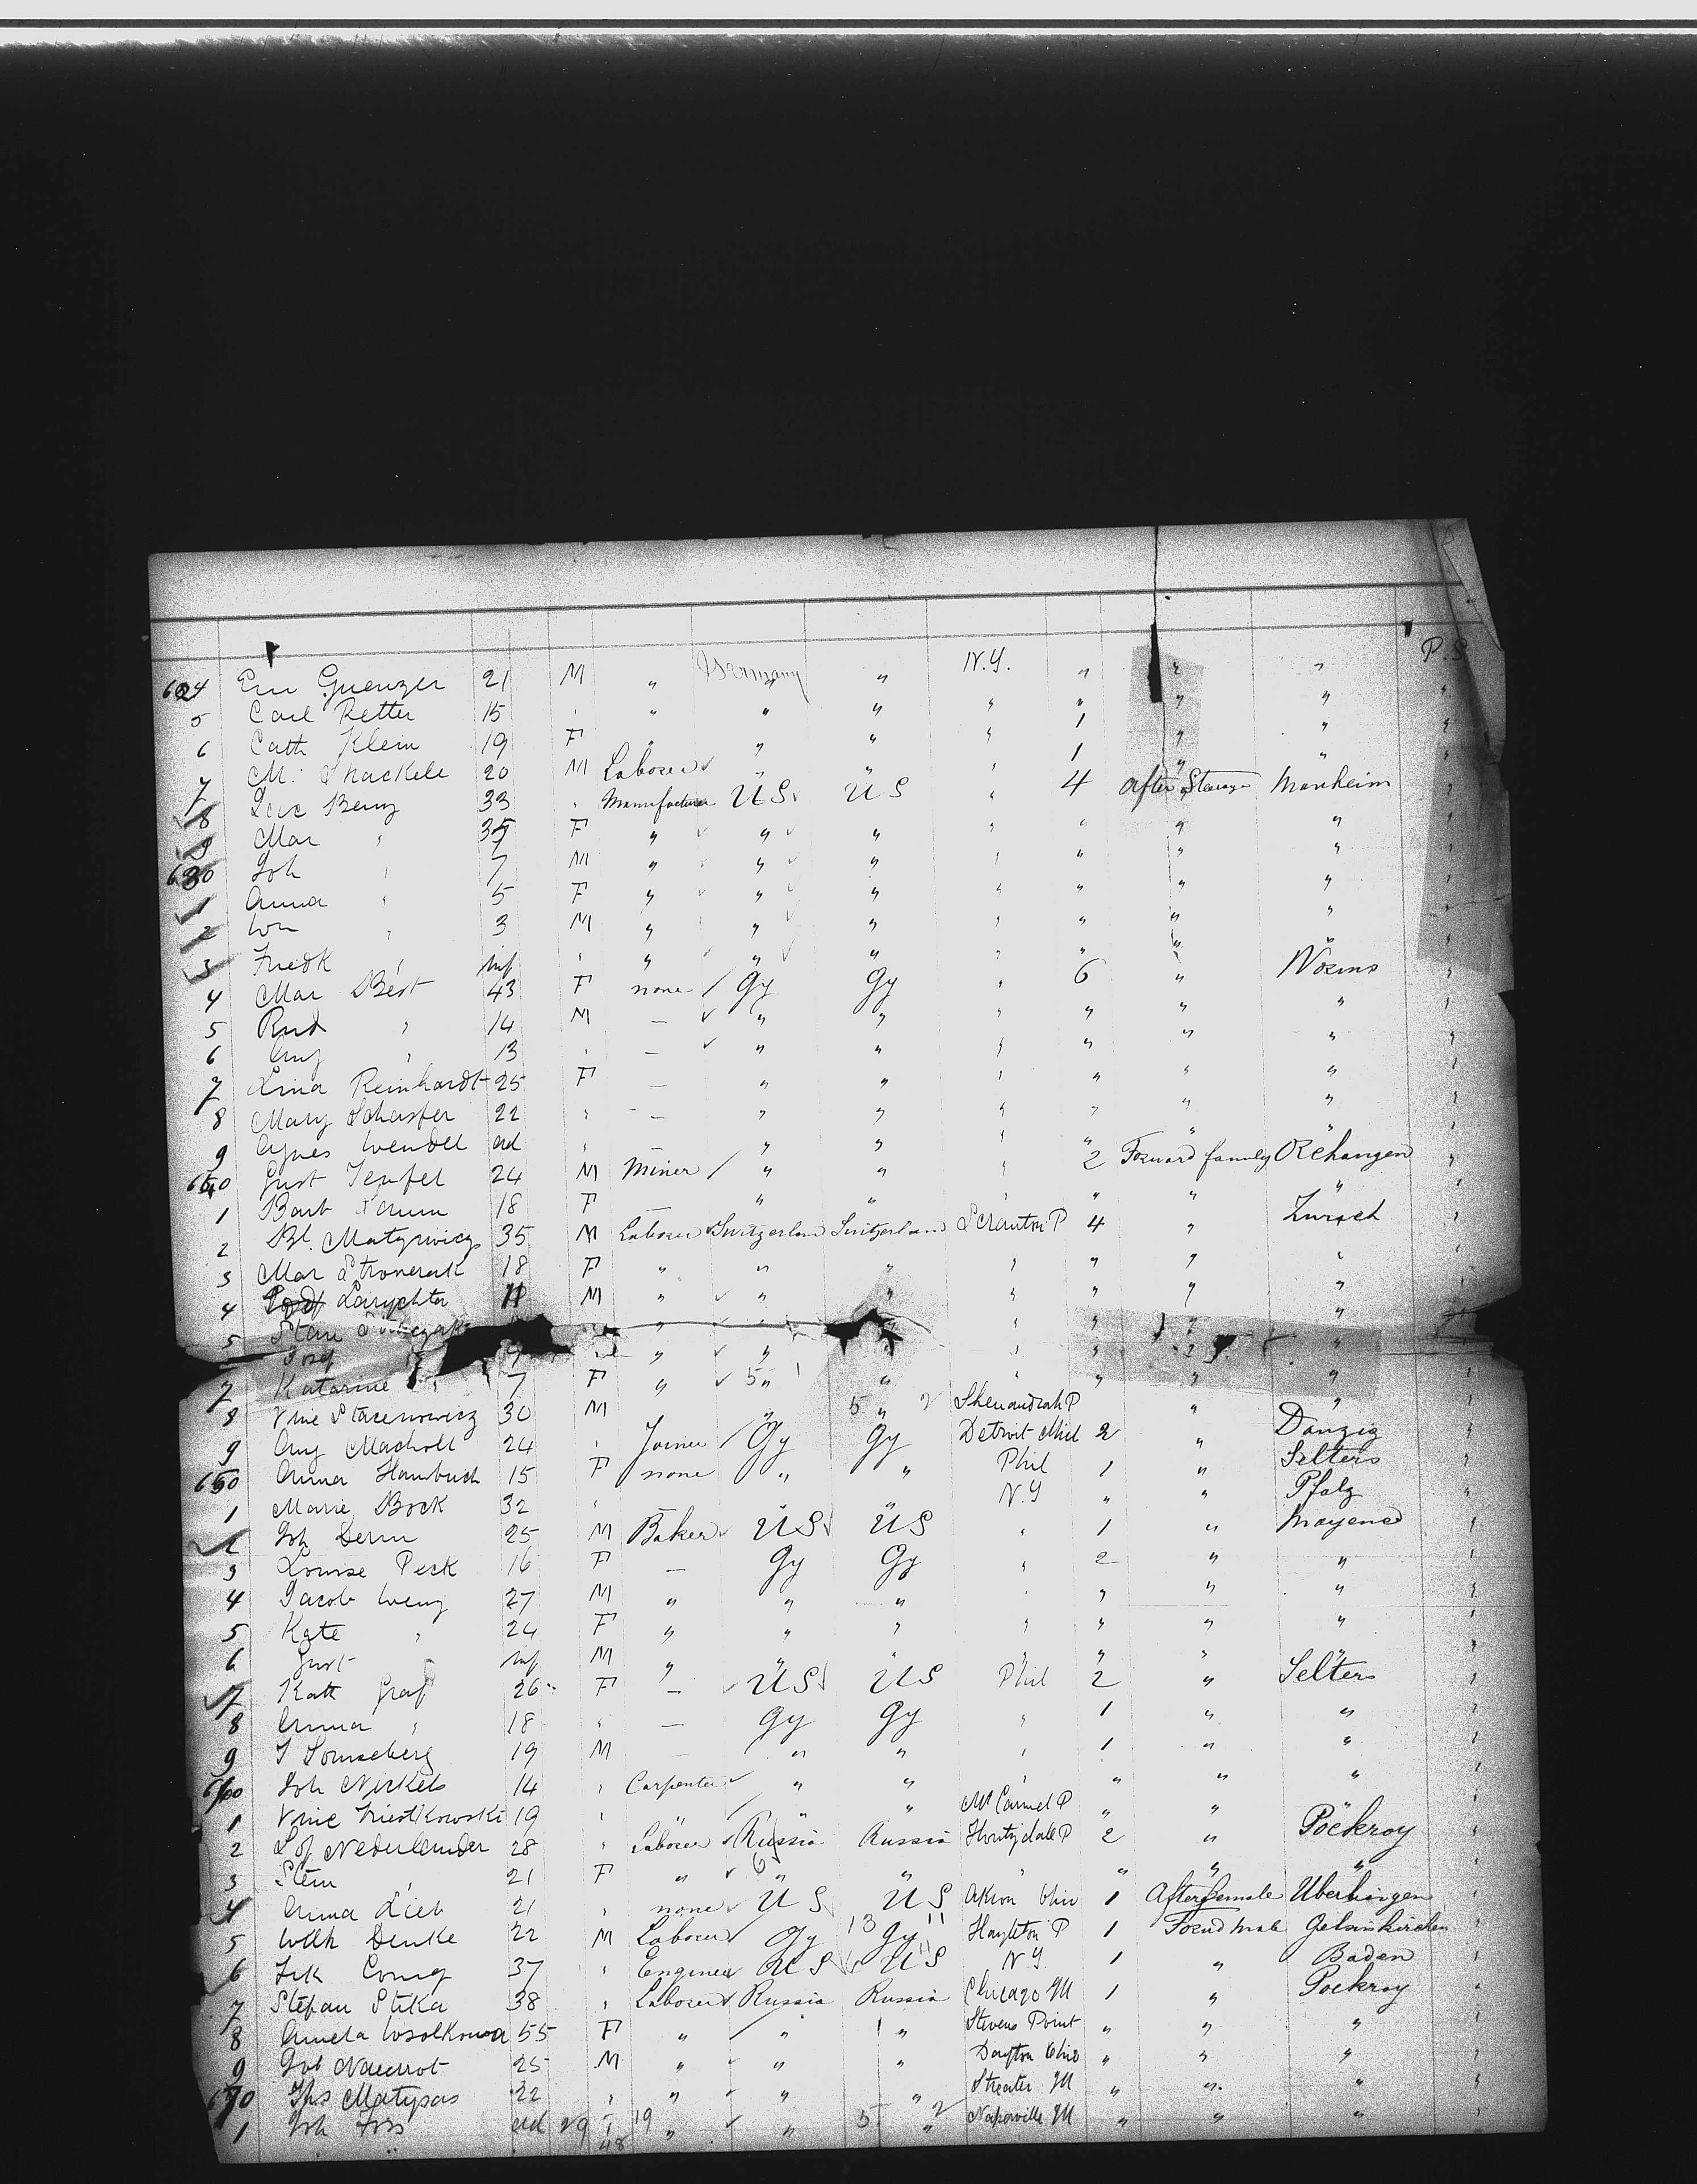 N.Y. P.S
624 Em Guenzer 21 M " Germany " " " "
5 Carl Retter 15 " " " " " " " "
6 Cath Klein 19 F " " " " 1 " "
7 M. Shackele 20 M Laborer " " " 1 " "
8 Benz 33 " Manufacturer U S U S " 4 After Steerage Manheim
9 Mar " 35 F " " " " " " "
630 Joh " 7 M " " " " " " "
1 Anna " 5 F " " " " " " "
2 Wm " 3 M " " " " " " "
3 Fredk " inf " " " " " " " "
4 Mar Best 43 F none Gy Gy " 6 " Worms
5 Rud " 14 M — " " " " " "
6 Aug " 13 " — " " " " " "
7 Lina Reinhardt 25 F — " " " " " "
8 Mary Schaefer 22 " — " " " " " "
9 Agnes Wendel ad " — " " " " " "
640 Gust Teufel 24 M Miner " " " 2 Forward family
1 Barb 18 F " " " " " "
2 Bl. Matyrwicz 35 M Laborer Switzerland Switzerland Scranton P 4 " Zurich
3 Mar 18 F " " " " " " "
4 Larychta 11 M " " " " " " "
5 Stan " " " " " " " "
Josef " " " " " " " "
7 Katarine " 7 F " 5 " " " " " "
8 Vinc 30 M " 5 " 2 Shenandoah P " "
9 Aug Macholl 24 " Joiner Gy Gy Detroit Mich 2 " Danzig
650 Anna Hambuch 15 F none " " Phil 1 " Selters
1 Marie Bock 32 " " " N.Y " " Pfalz
2 Joh Derm 25 M Baker U S U S " 1 " Mayence
3 Louise Peck 16 F — Gy Gy " 2 " "
4 Jacob Weng 27 M " " " " " " "
5 Kate " 24 F " " " " " " "
6 Gust inf M " " " " " " "
7 Kath Graf 26 F — U S U S Phil 2 " Selters
8 Anna " 18 " — Gy Gy " 1 " "
9 J Sonneberg 19 M — " " " 1 " "
660 Joh Nickels 14 " Carpenter " " " " " "
1 Vinc 19 " " " " Mt Carmel P " " "
2 Nederlander 28 " Laborer Russia Russia Houtzdale P 2 " Pockroy
3 Stein " 21 F " 6 " " " " " "
4 Anna Lieb 21 " none U S U S Akron Ohio 1 After female Uberlingen
5 Wilh Denke 22 M Laborer Gy 13 Gy 11 Hazleton P 1 Forwd male Gelsenkirchen
6 Frk 37 " Engineer U S U S N Y. 1 " Baden
7 Stefan Stika 38 " Laborer Russia Russia Chicago Ill 1 " Pockroy
8 Amela 55 F " " 1 " Stevens Point " " "
9 Nawrot 25 M " " " Dayton Ohio " " "
670 Matysas 22 " " " " Streator Ill " " "
1 Joh Foss ad 29 19 " " 5 " 2 Naperville Ill " " "
48